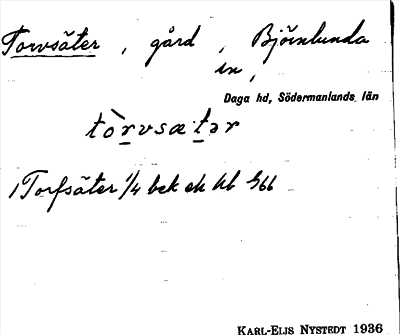 Torvsäter, gård, Björnlunda
sn,
Daga hd, Södermanlands län
tòrvsætər
1 Torfsäter 1/4 bek ek hb 566
KARL-ELIS NYSTEDT 1936